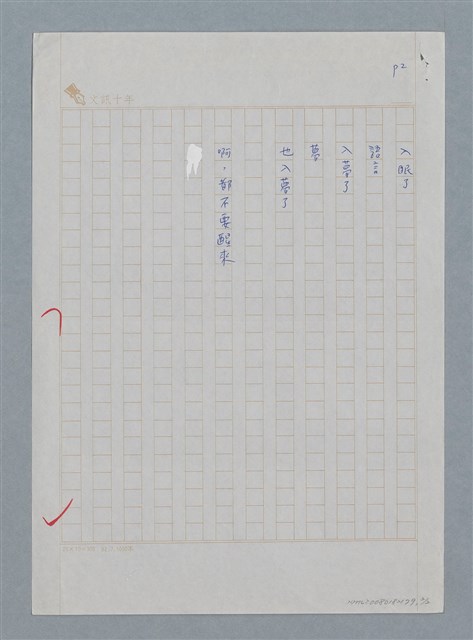 p2
文訊十年
入眠了
入夢了
夢
也入夢了
啊，都不要醒來